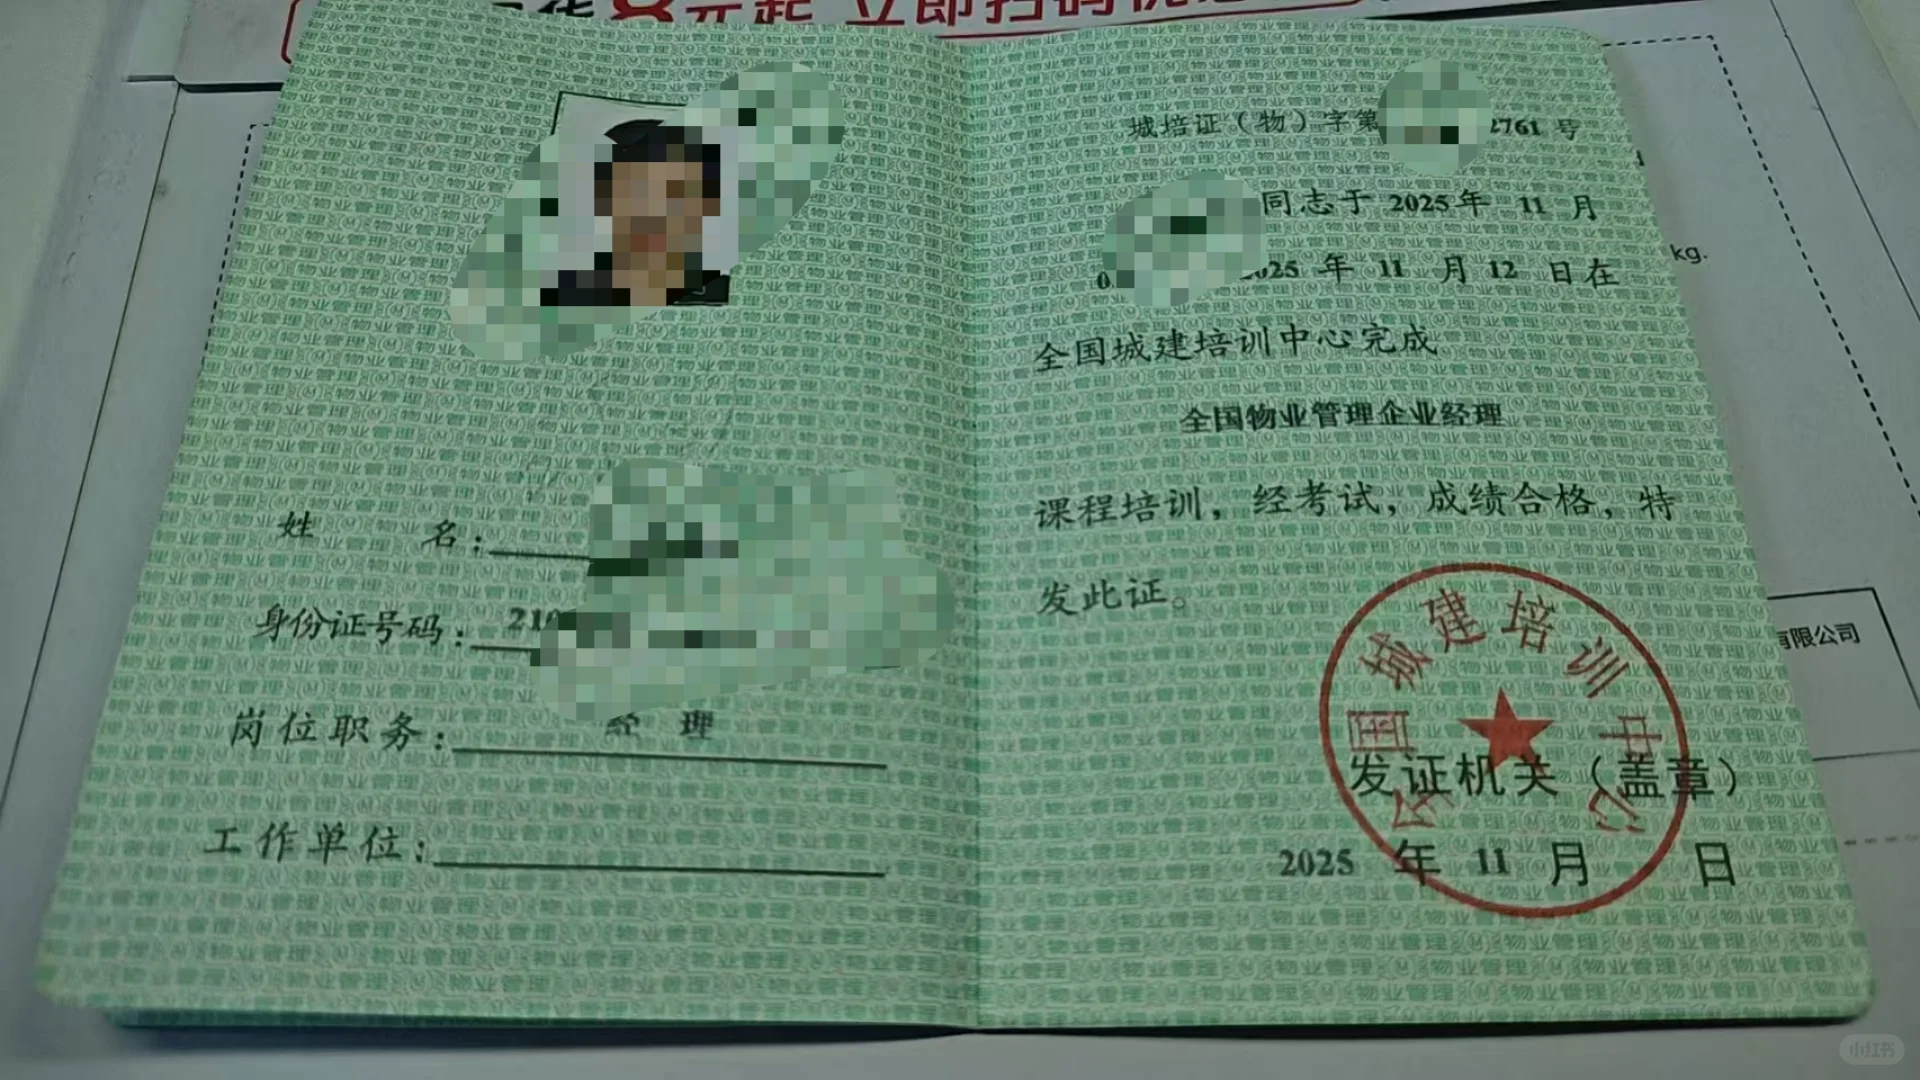 元起 立即扫码
姓 名：
身份证号码：210
岗位职务： 经 理
工作单位：
城培证（物）字第 2761 号
同志于 2025 年 11 月
0 2025 年 11 月 12 日在
全国城建培训中心完成
全国物业管理企业经理
课程培训，经考试，成绩合格，特
发此证。
全国城建培训中心
发证机关（盖章）
2025 年 11 月 日
kg.
有限公司
小红书